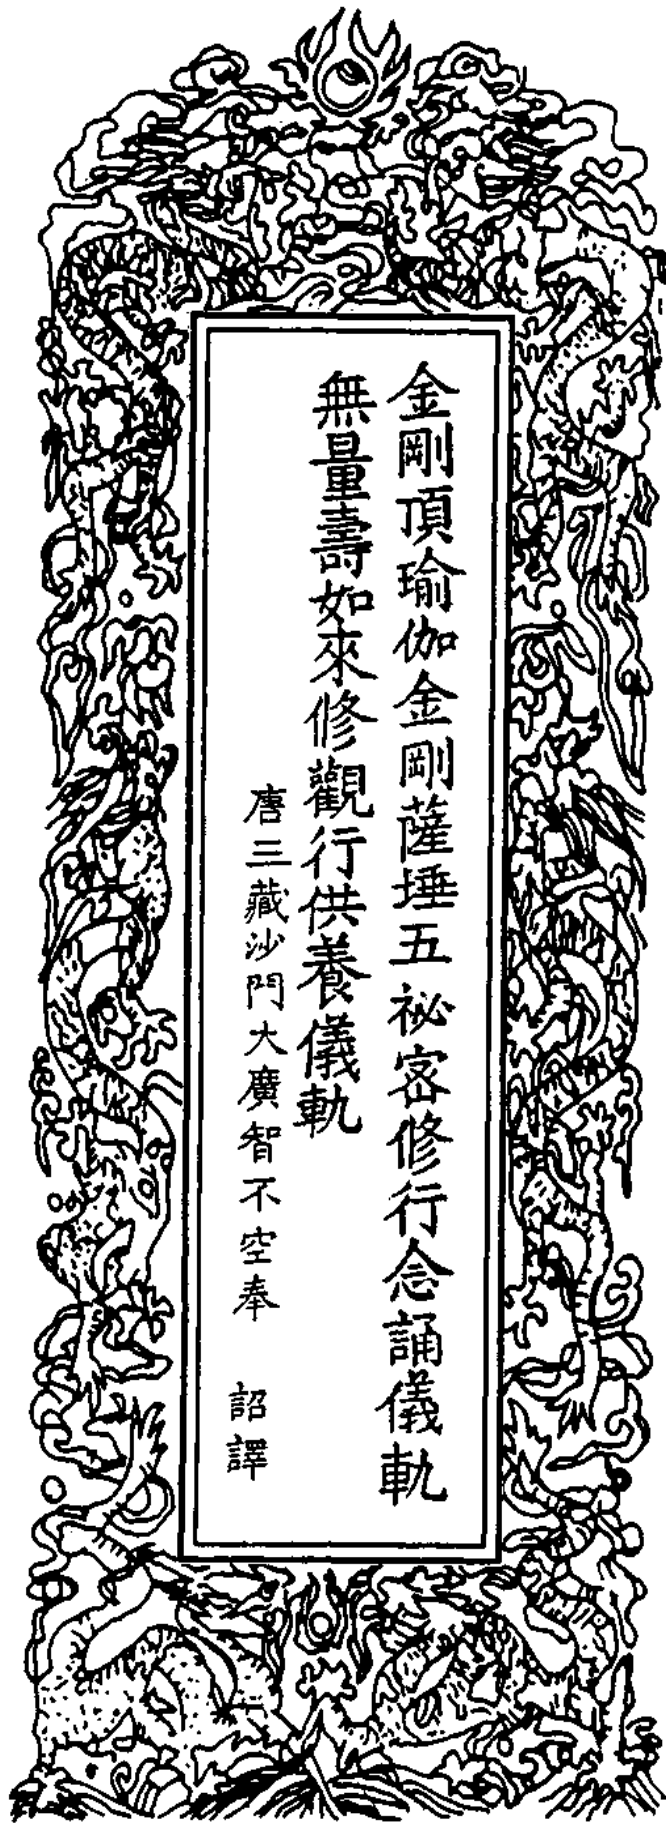 金剛頂瑜伽金剛薩埵五祕密修行念誦儀軌
無量壽如來修觀行供養儀軌
唐三藏沙門大廣智不空奉 詔譯